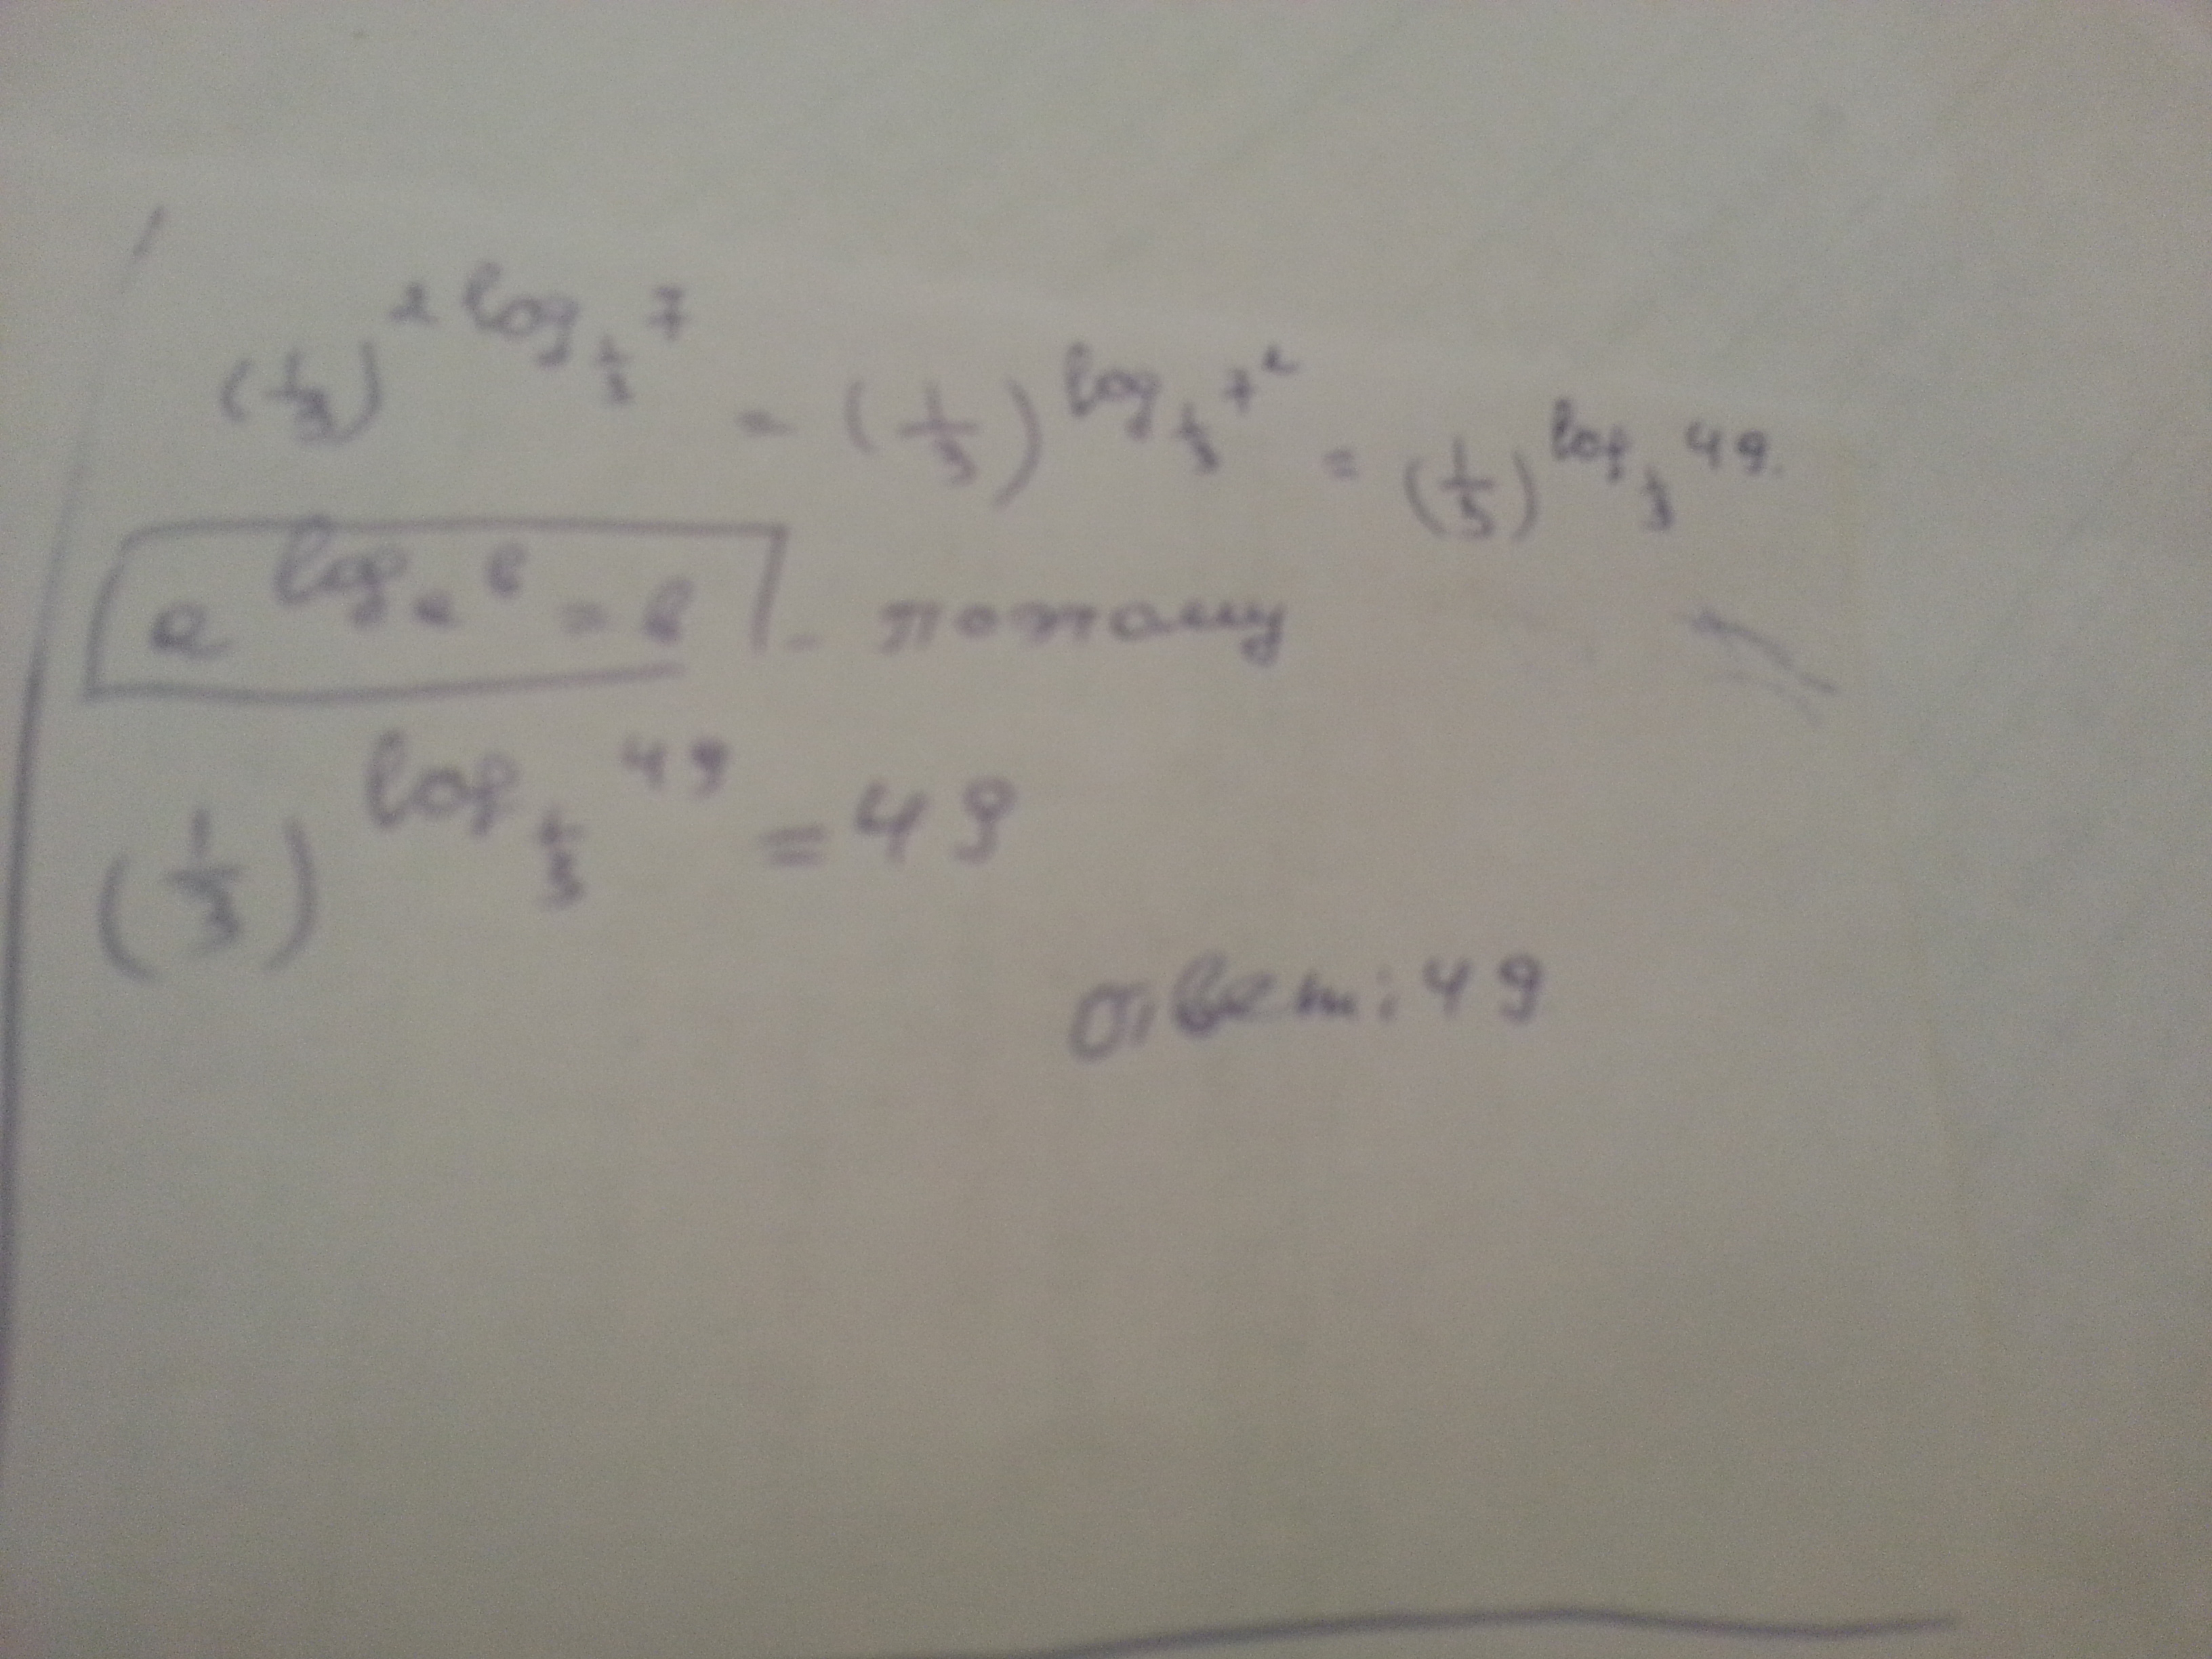 (1/3)^(2 log_(1/3) 7) = (1/3)^(log_(1/3) 7^2) = (1/3)^(log_(1/3) 49).
a^(log_a в) = в - потому
(1/3)^(log_(1/3) 49) = 49
ответ: 49